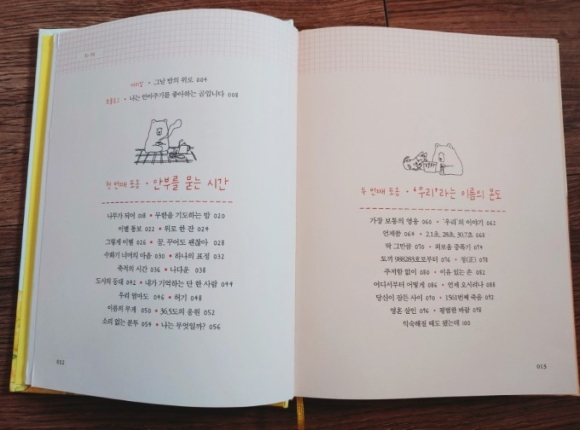 그날 밤의 위로 004
프롤로그 • 나는 안아주기를 좋아하는 곰입니다 008
첫 번째 모음 • 안부를 묻는 시간
나무가 되어 018 • 무한을 기도하는 밤 020
이별 통보 022 • 위로 한 잔 024
그렇게 이별 026 • 꿈, 꾸어도 괜찮아 028
수화기 너머의 마음 030 • 하나의 표정 032
축적의 시간 036 • 나다운 038
도시의 등대 042 • 내가 기억하는 단 한 사람 044
우리 엄마도 046 • 허기 048
이름의 무게 050 • 36.5도의 응원 052
소리 없는 분투 054 • 나는 무엇일까? 056
012
두 번째 모음 • '우리'라는 이름의 온도
가장 보통의 영웅 060 • '우리'의 이야기 062
언제쯤 064 • 2.1초, 28초, 30.7초 068
딱 그만큼 070 • 외로움 증폭기 074
토끼 988283호로부터 076 • 정(正) 078
주저함 없이 080 • 이유 있는 손 082
어디서부터 어떻게 086 • 언제 오시려나 088
당산이 잠든 사이 090 • 1561번째 죽음 092
영혼 살인 096 • 평범한 바람 098
익숙해질 때도 됐는데 100
013